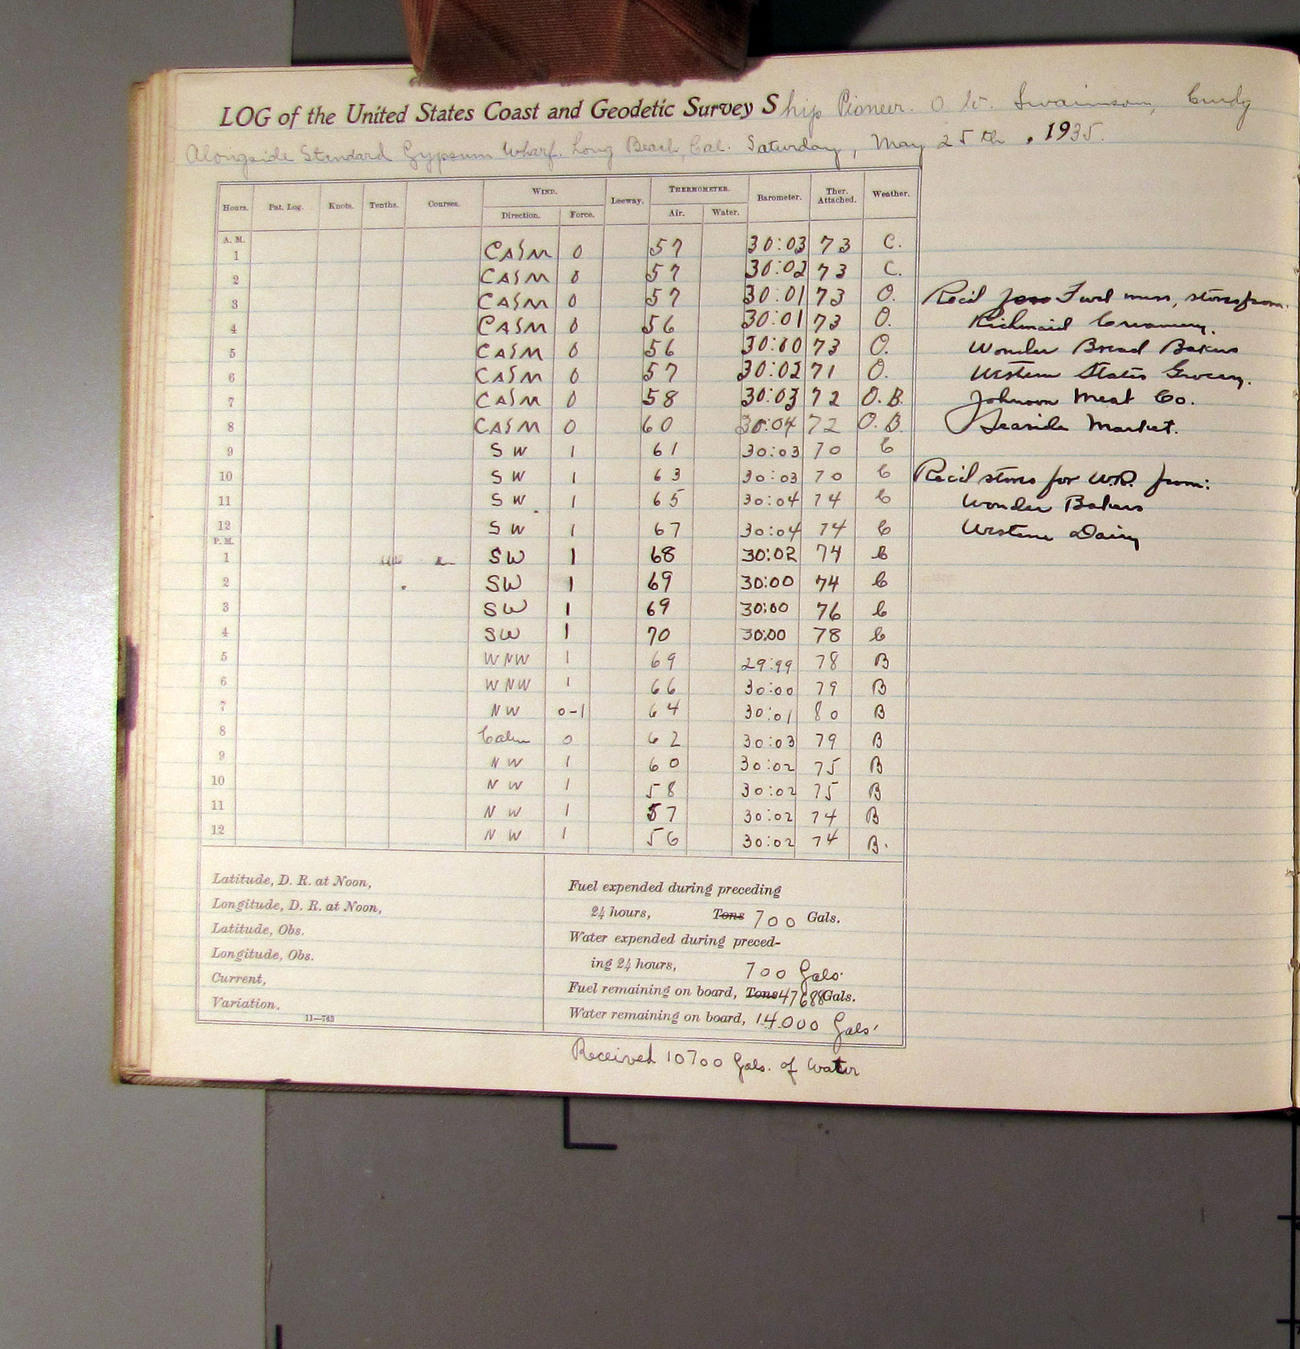 LOG of the United States Coast and Geodetic Survey Ship Pioneer. O. W. Swainson, Cmdg
Alongside Standard Gypsum Wharf. Long Beach, Cal. Saturday, May 25th, 1935.
Hours. Pat. Log. Knots. Tenths. Courses. WIND. Direction. Force. Leeway. THERMOMETER. Air. Water. Barometer. Ther. Attached. Weather.
A. M.
1 CALM 0 57 30:03 73 C.
2 CALM 0 57 30:02 73 C.
3 CALM 0 57 30:01 73 O. Rec'd for Fwd mess, stores from.
4 CALM 0 56 30:01 73 O. Richmaid Creamery.
5 CALM 0 56 30:00 73 O. Wonder Bread Bakers
6 CALM 0 57 30:02 71 O. Western States Grocery.
7 CALM 0 58 30:03 72 O.B. Johnson Meat Co.
8 CALM 0 60 30:04 72 O.B. Seaside Market.
9 SW 1 61 30:03 70 C
10 SW 1 63 30:03 70 C Rec'd stores for W.R. from:
11 SW 1 65 30:04 74 C Wonder Bakers
12 SW 1 67 30:04 74 C Western Dairy
P. M.
1 SW 1 68 30:02 74 C
2 SW 1 69 30:00 74 C
3 SW 1 69 30:00 76 C
4 SW 1 70 30:00 78 C
5 WNW 1 69 29:99 78 B
6 WNW 1 66 30:00 79 B
7 NW 0-1 64 30:01 80 B
8 Calm 0 62 30:03 79 B
9 NW 1 60 30:02 75 B
10 NW 1 58 30:02 75 B
11 NW 1 57 30:02 74 B
12 NW 1 56 30:02 74 B.
Latitude, D. R. at Noon,
Longitude, D. R. at Noon,
Latitude, Obs.
Longitude, Obs.
Current,
Variation,
11—743
Fuel expended during preceding
24 hours, Tons 700 Gals.
Water expended during preced-
ing 24 hours, 700 Gals.
Fuel remaining on board, Tons 47688 Gals.
Water remaining on board, 14000 Gals.
Received 10700 Gals. of Water